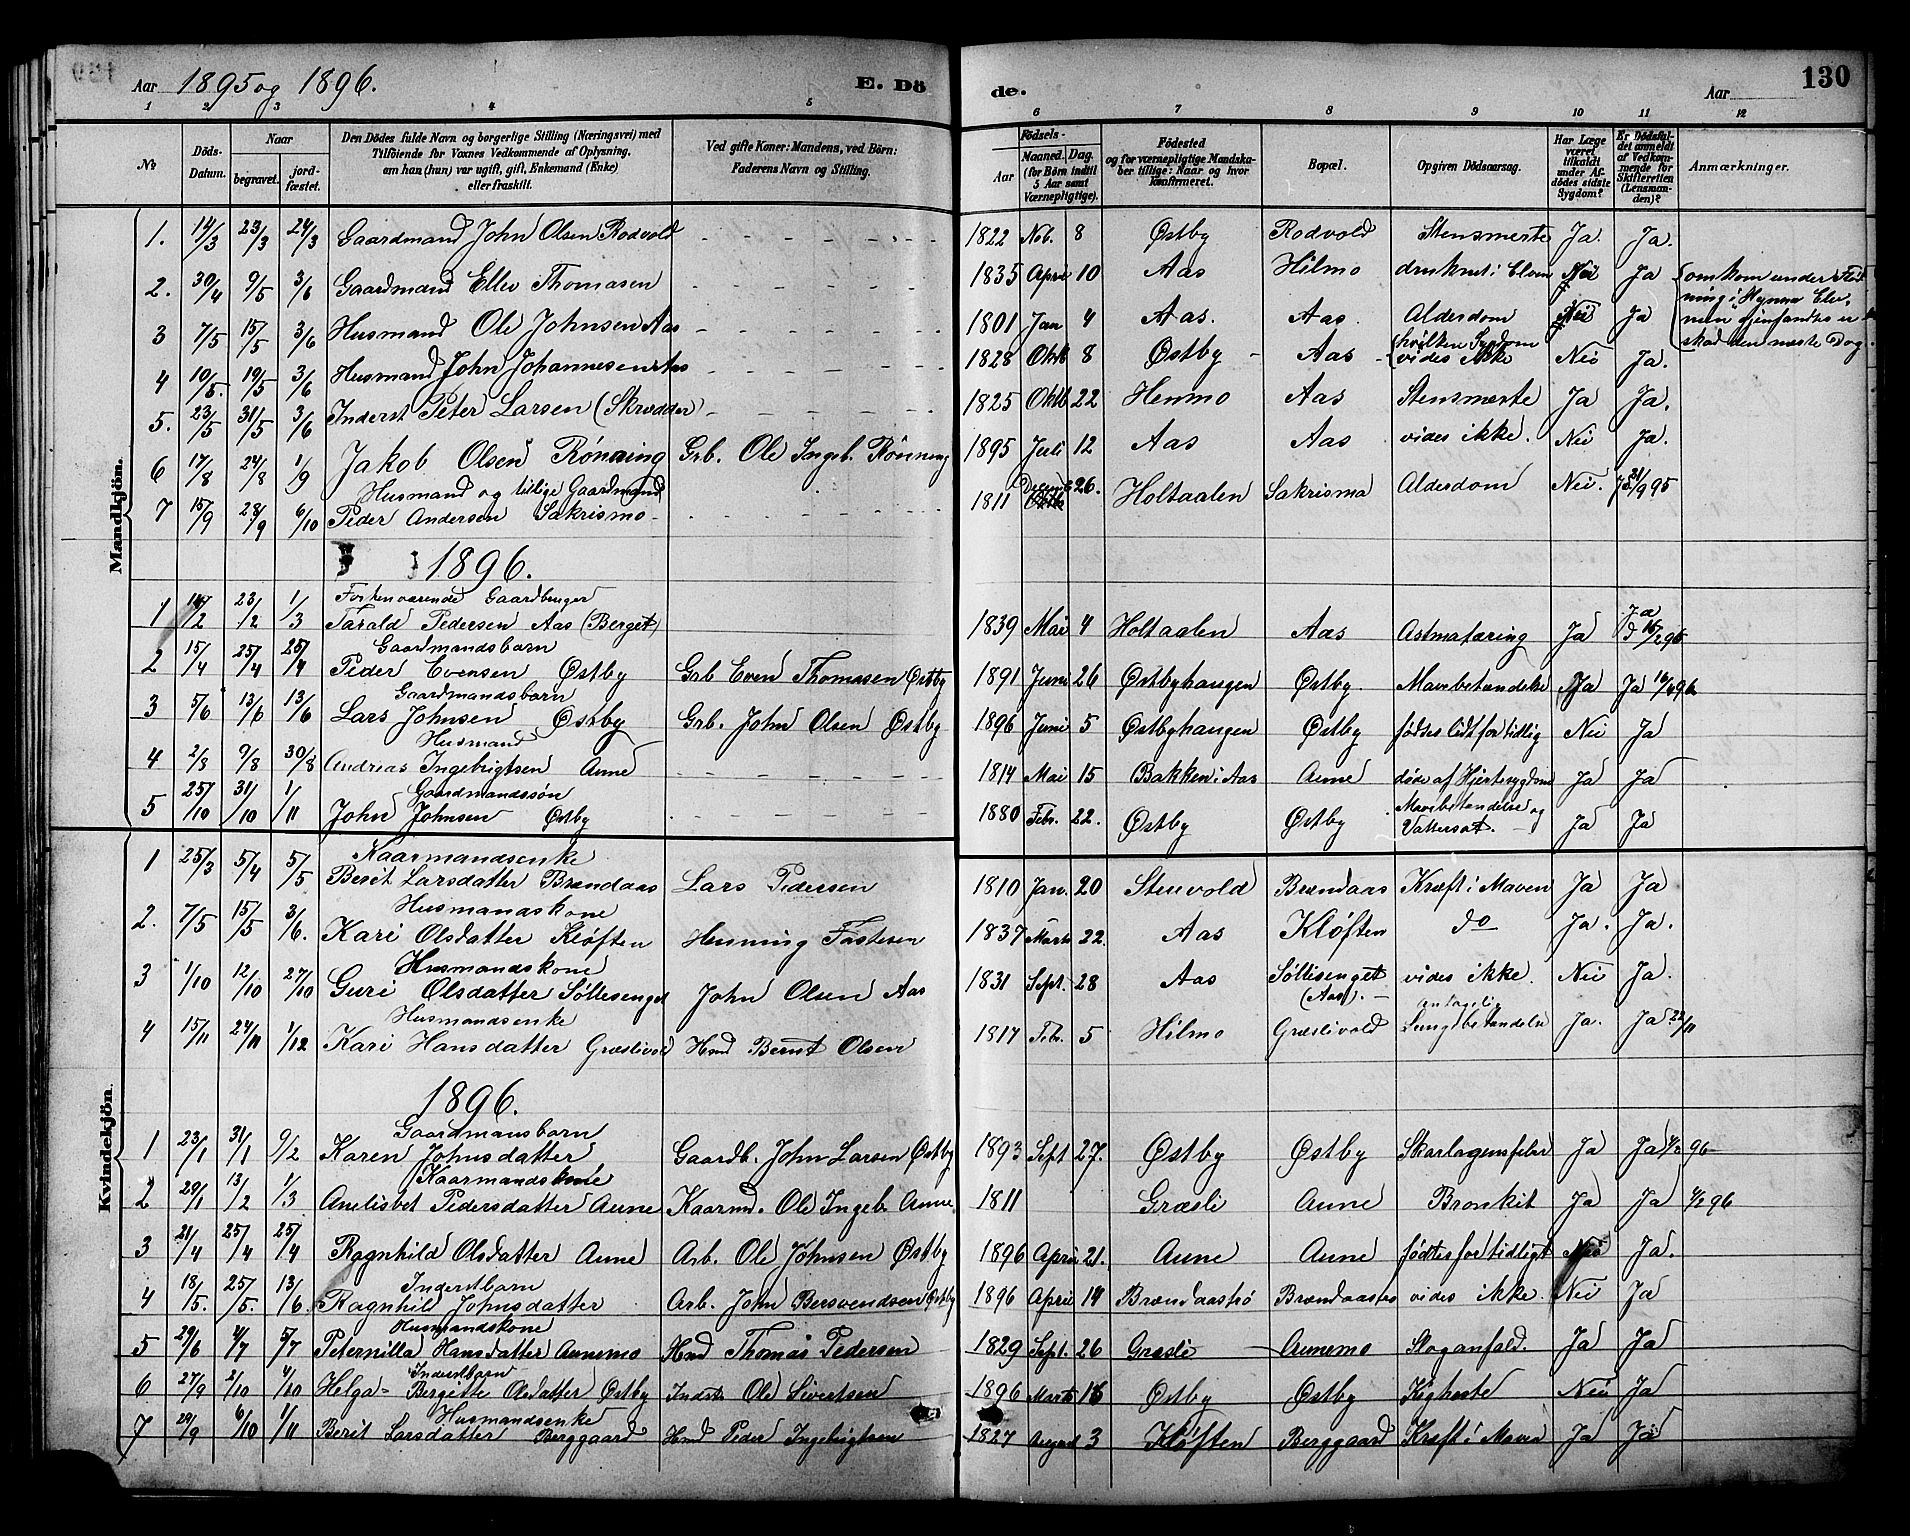 Aar 1895 og 1896. E. Dö de. Aar 130
1 2 3 4 5 6 7 8 9 10 11 12
№ Döds-Datum. Naar begravet. jord-fæstet. Den Dödes fulde Navn og borgerlige Stilling (Næringsvei) med Tilföiende for Voxnes Vedkommende af Oplysning, om han (hun) var ugift, gift, Enkemand (Enke) eller fraskilt. Ved gifte Koner: Mandens, ved Börn: Faderens Navn og Stilling. Födsels- Aar Maaned. (for Börn indtil 5 Aar samt Værnepligtige). Dag. Födested og for værnepligtige Mandskaber tillige: Naar og hvor konfirmeret. Bopæl. Opgiven Dödsaarsag. Har Læge været tilkaldt under Afdödes sidste Sygdom? Er Dödsfaldet anmeldt af Vedkommende for Skifteretten (Lensmanden)? Anmærkninger.
Mandkjön.
1. 14/3 23/3 24/3 Gaardmand John Olsen Rodvold 1822 Nob. 8 Østby Rodvold Stensmerte Ja. Ja.
2. 30/4 9/5 3/6 Gaardmand Ellev Thomasen 1835 April 10 Aas Hilmo druknet i Elven Nei Ja omkom under Fløtning i Elv,
3 7/5 15/5 3/6 Husmand Ole Johnsen Aas 1801 Jan 4 Aas. Aas. Alderdom Nei Ja
4 10/5. 19/5 3/6 Husmand John Johannesen Aas 1828 Oktb 8 Østby Aas hvilken Sygdom vides ikke Nei Ja. den næste Dag.
5. 23/5 31/5 3/6 Inderst Peter Larsen (Skrædder) 1825 Oktb 22 Henmo Aas Stensmerte Ja Ja.
6 17/8 24/8 1/9 Jakob Olsen Rønning Grb. Ole Ingeb. Rønning 1895 Juli 12 Aas Aas vides ikke. Nei Ja.
Husmand og tillige Gaardmand
7 15/9 28/9 6/10 Peder Andersen Sakrismo 1811 Decemb 26. Holtaalen Sakrismo Alderdom Nei. Ja 21/9 95
1896.
Forhenværende Gaardbruger
1 14/2 23/2 1/3 Tarald Pedersen Aas (Berget) 1839 Mai 4 Holtaalen Aas Astmatæring Ja Ja
Gaardmandsbarn
2 15/4 25/4 25/4 Peder Evensen Østby Grb Even Thomasen Østby 1891 Juni 26 Østbyhaugen Østby. Mavebetændelse Ja Ja 16/4 96
Gaardmandsbarn
3 5/6 13/6 13/6 Lars Johnsen Østby Grb. John Olsen Østby 1896 Juni 5 Østbyhaugen Østby fødses lidt for tidlig Nei Ja
Husmand
4 2/8 9/8 30/8 Andreas Ingebrigtsen Aune 1814 Mai 15 Bakken i Aas Aune døde af Hjertesygdom Ja Ja
Gaardmandssøn
5 25/10 31/10 1/11 John Johnsen Østby 1880 Febr. 22. Østby Østby Mavebetændelse og Vattersot. Ja Ja
Kvindekjön.
Kaarmandsenke
1 25/3 5/4 5/5 Berit Larsdatter Brændaas Lars Pedersen 1810 Jan. 20 Stenvold Brændaas Kræft i Maven Ja Ja
Husmandskone
2. 7/5 15/5 3/6. Kari Olsdatter Kløften Henning Fastesen 1837 Marts 22. Aas Kløften do Ja. Ja.
Husmandskone
3 1/10 12/10 27/10 Guri Olsdatter Søllisenget John Olsen Aas 1831 Sept. 28 Aas Søllisenget (Aas). vides ikke. Nei Ja.
Husmandsenke
4 15/11 24/11 1/12 Kari Hansdatter Græslivold Hmd Bernt Olsen 1817 Febr. 5 Hilmo Græslivold antagelig Lungebetændelse Ja. Ja. 22/11
1896.
Gaardmansbarn
1 23/1 31/1 9/2 Karen Johnsdatter Gaardb. John Larsen Østby 1893 Sept 27. Østby Østby Skarlagensfeber Ja Ja 96
Kaarmandskone
2 29/1 13/2 1/3 Anelisbet Pedersdatter Aune Kaarmd. Ole Ingeb. Aune 1811 Græsli Aune Bronkit Ja Ja 4/2 96
3 21/4 25/4 25/4 Ragnhild Olsdatter Aune Arb. Ole Johnsen Østby 1896 April 21. Aune Aune født for tidligt Nei Ja.
Inderstbarn
4 18/5. 25/5. 13/6 Ragnhild Johnsdatter Arb. John Bersvendsen Østby 1896 April 14 Brændaastrø Brændaastrø vides ikke. Nei Ja
Husmandskone
5 29/6 4/7 5/7 Peternilla Hansdatter Aunemo Hmd Thomas Pedersen 1829 Sept. 26 Græsli Aunemo Slaganfald. Ja Ja
Inderstbarn
6 27/9 2/10 4/10 Helga Bergitte Olsdatter Østby Inderst Ole Sivertsen 1896 Marts 16 Østby Østby Kighoste Nei Ja
Husmandsenke
7 29/9 6/10 1/11 Berit Larsdatter Berggaard Hmd Peder Ingebrigtsen 1827 August 3 Kløften Berggaard Kræft i Maven Ja Ja